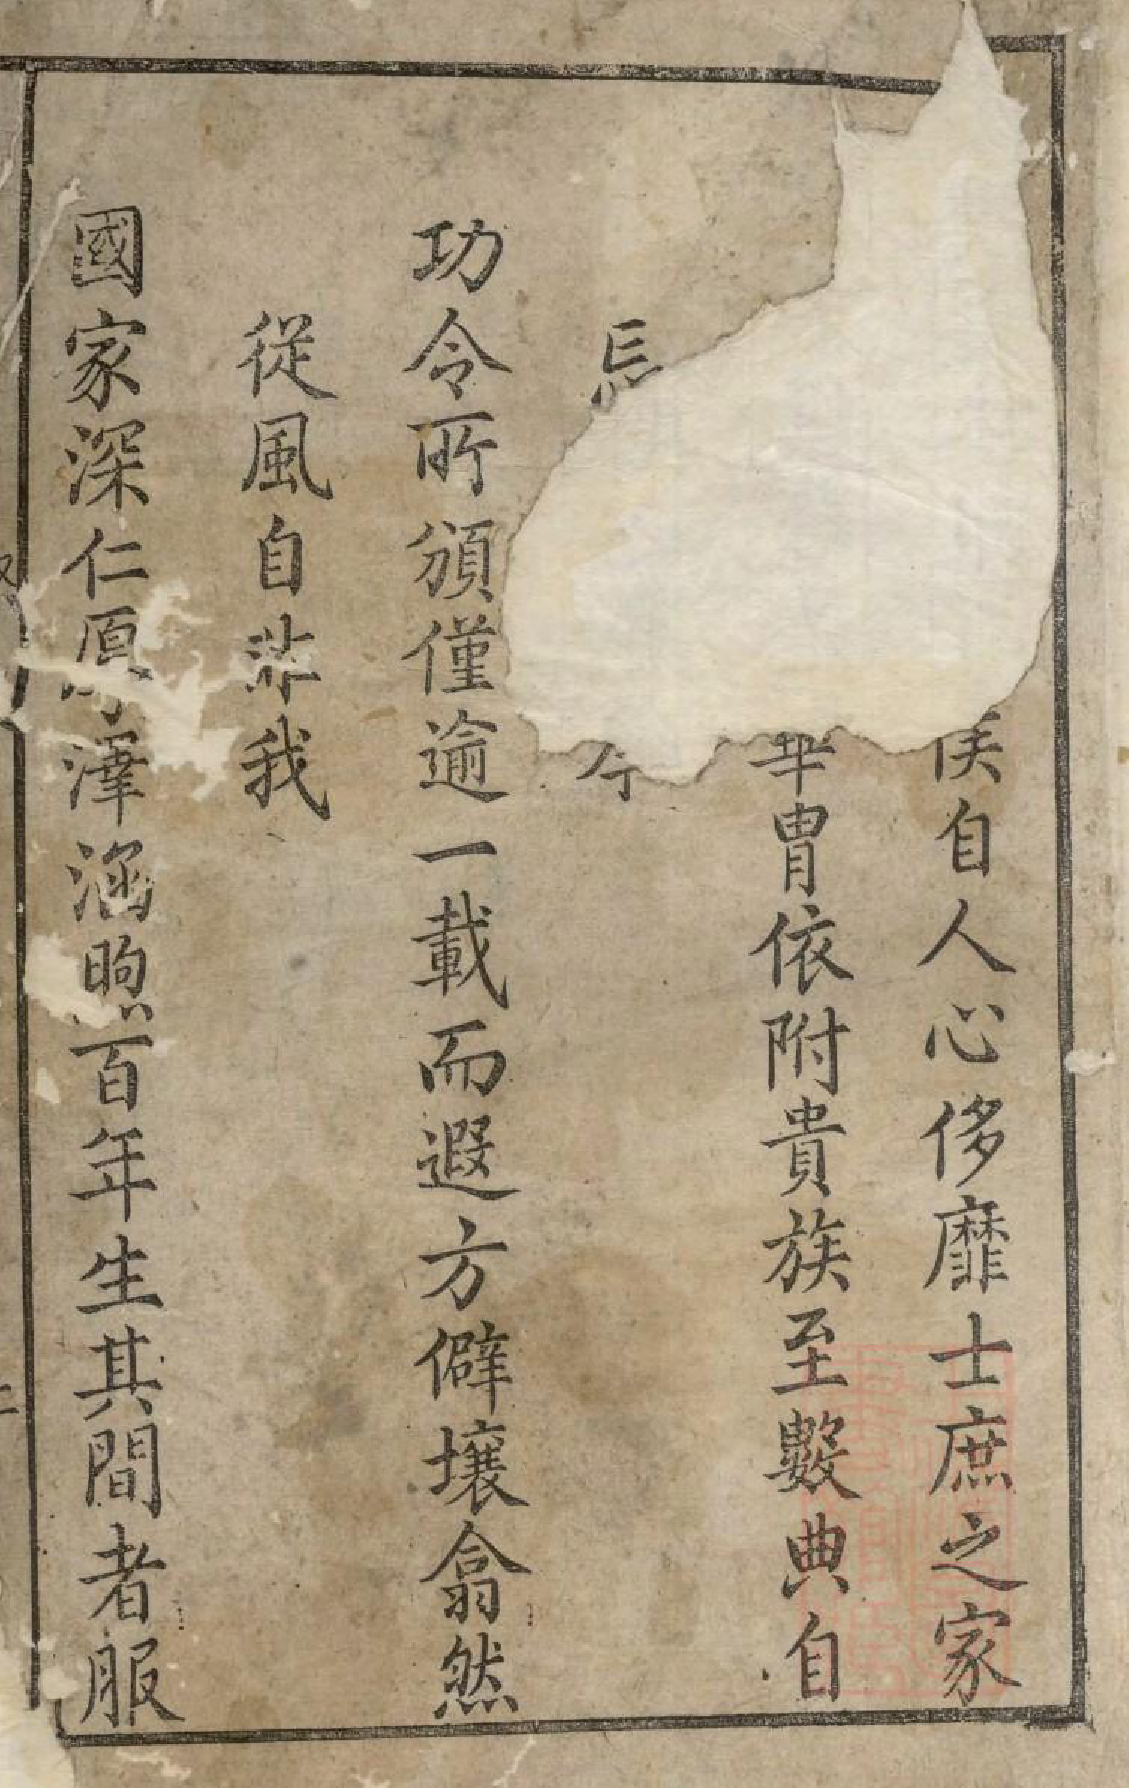 矦自人心侈靡士庶之家
華胄依附貴族至數典自
忘 今
功令所頒僅逾一載而遐方僻壤翕然
從風自非我
國家深仁厚澤涵煦百年生其間者服